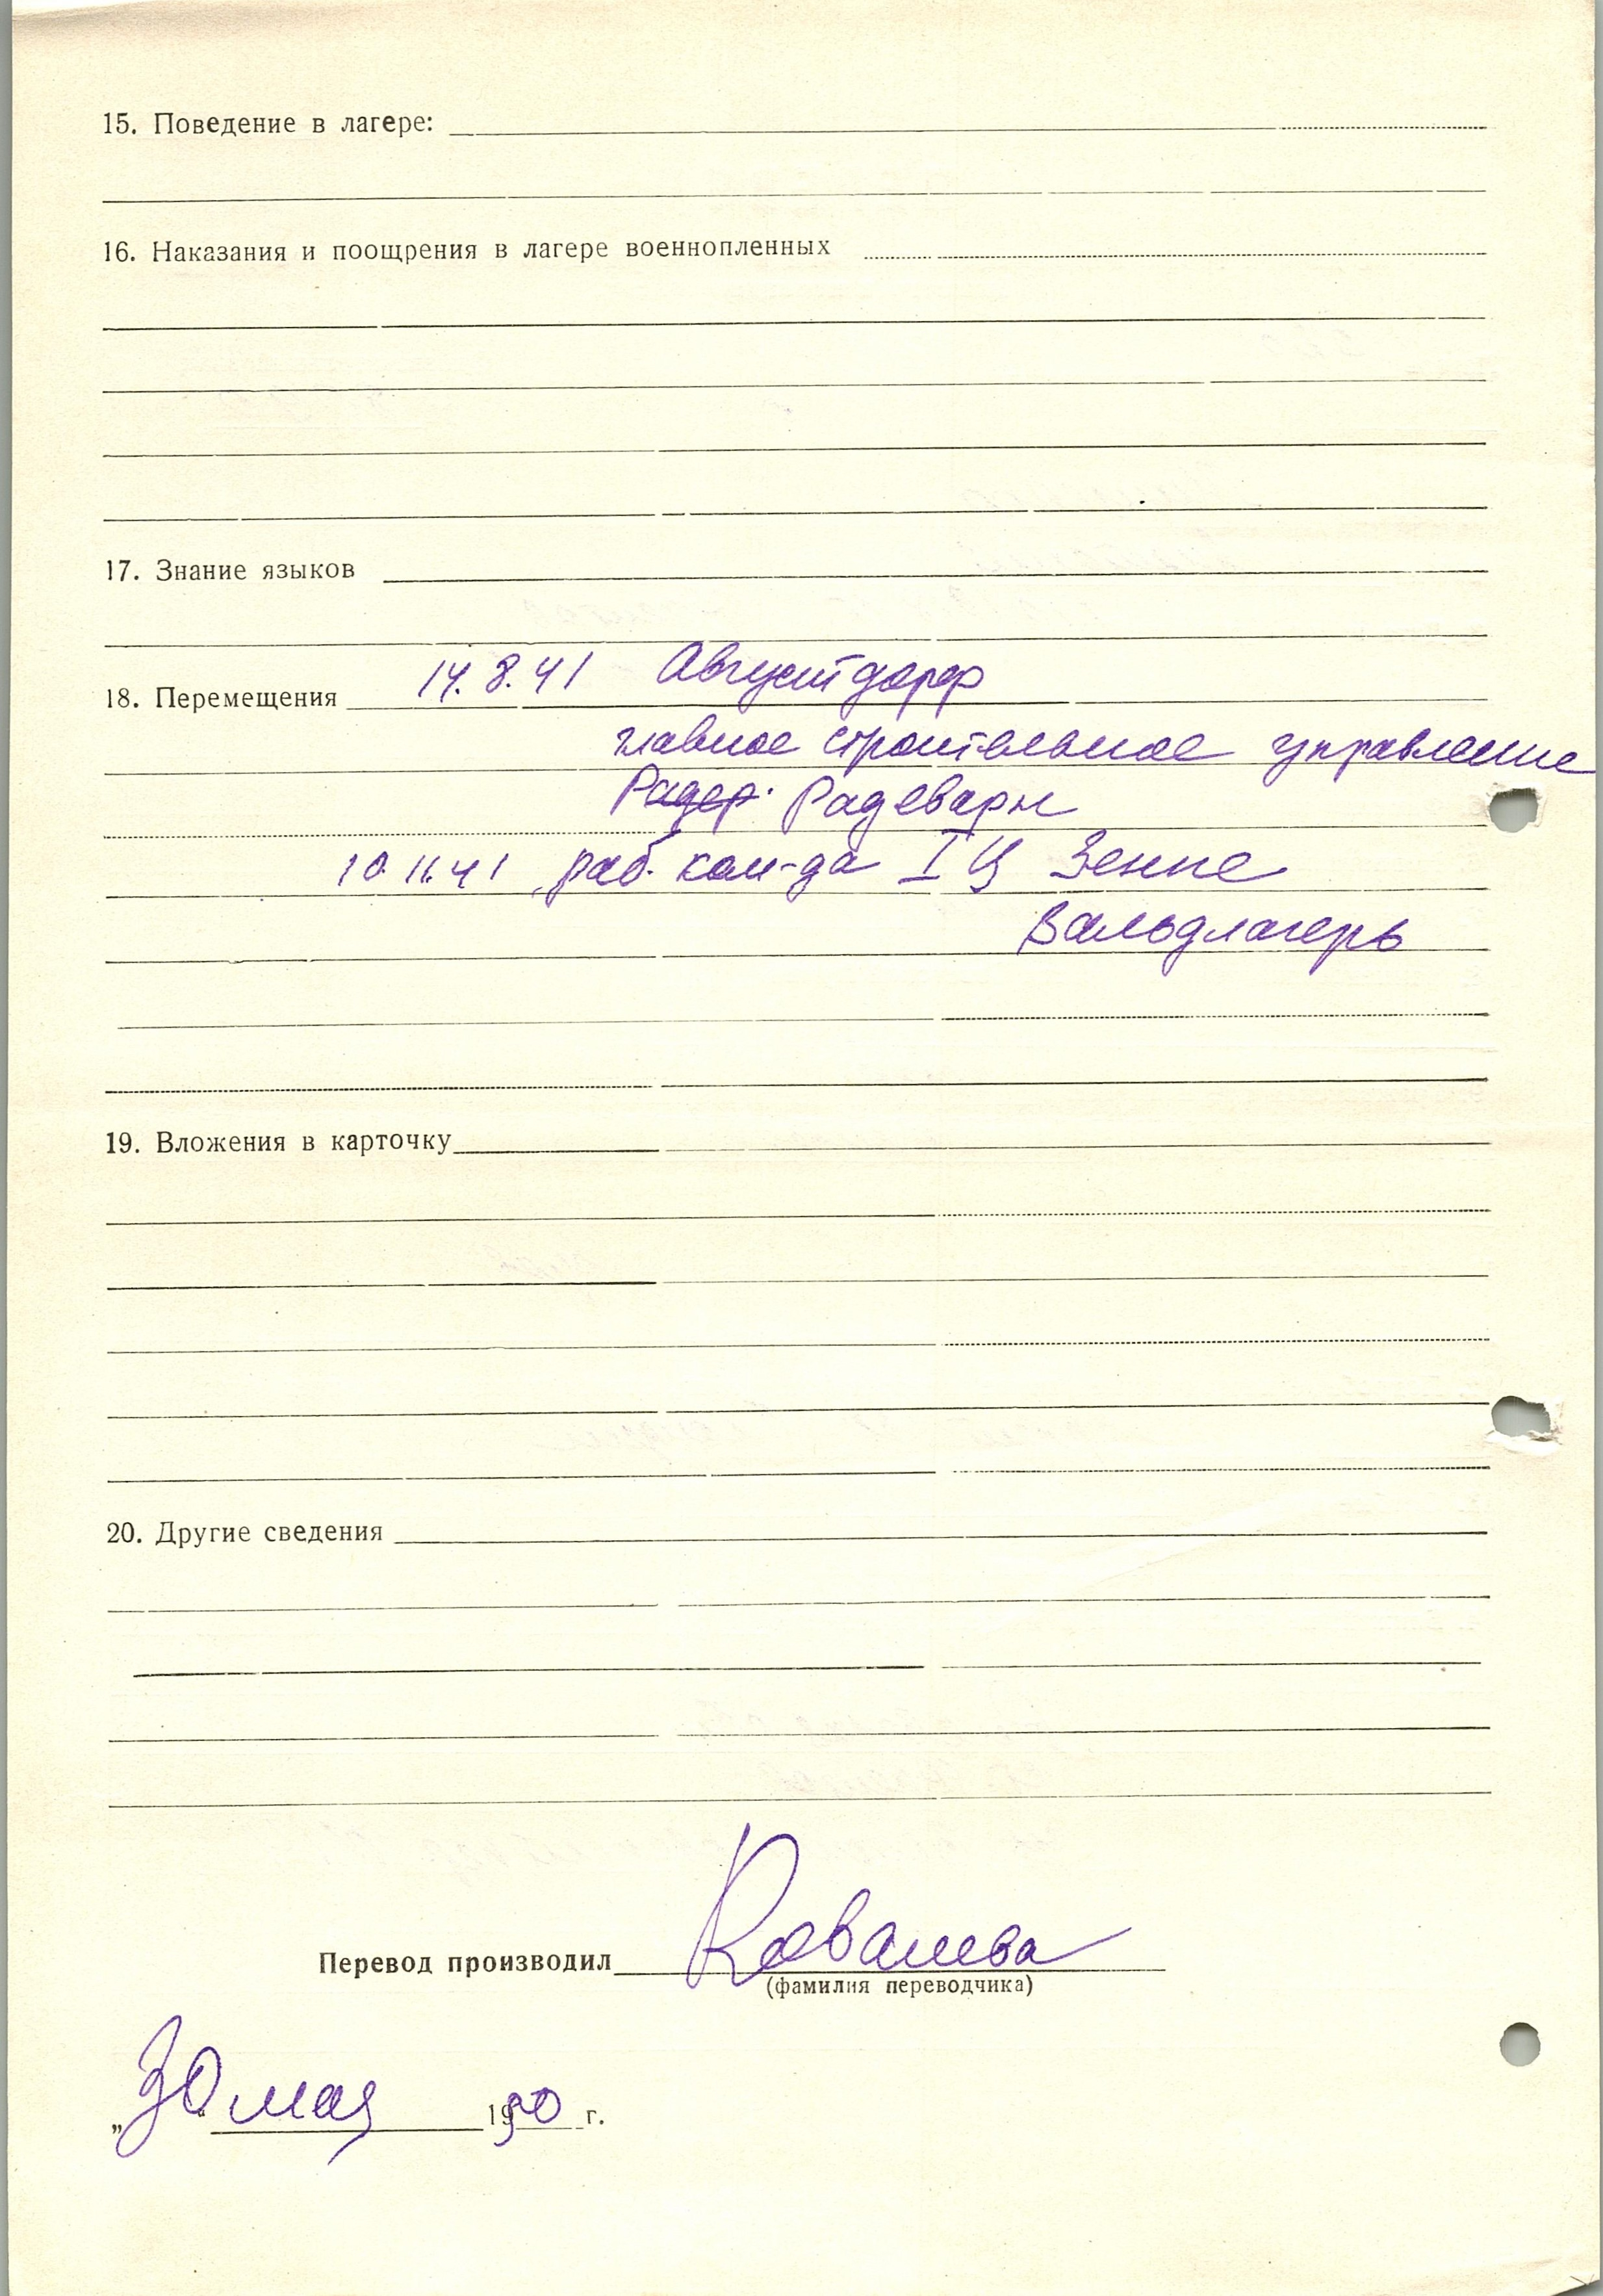 15. Поведение в лагере:
16. Наказания и поощрения в лагере военнопленных
17. Знание языков
18. Перемещения 14.8.41 Августдорф
главное строительное управление
Радер. Радеварн
10.11.41 раб. ком-да I Ц Зенне
Вальдлагерь
19. Вложения в карточку
20. Другие сведения
Перевод производил Ковалева
(фамилия переводчика)
„30" мая 1950 г.